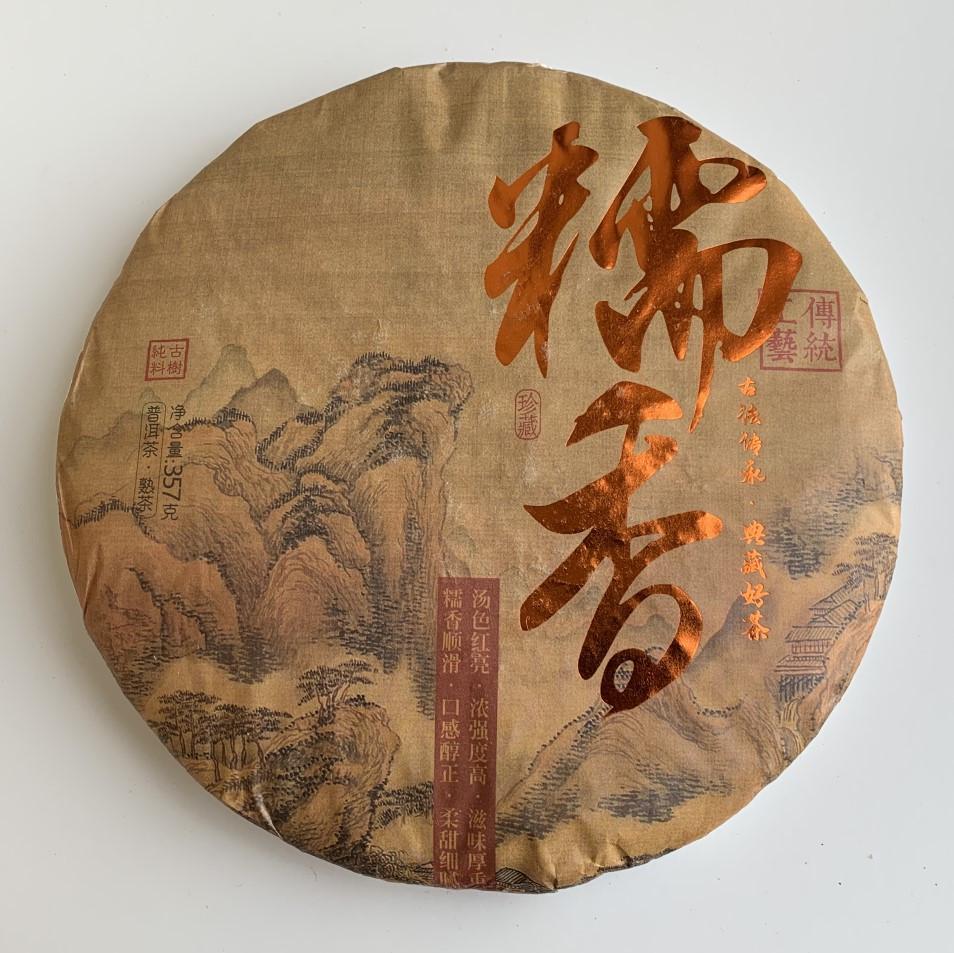 糯香
傳統
工藝
古法传承·典藏好茶
珍藏
汤色红亮·浓强度高·滋味厚重
糯香顺滑·口感醇正·柔甜细腻
古樹
純料
净含量:357克
普洱茶·熟茶